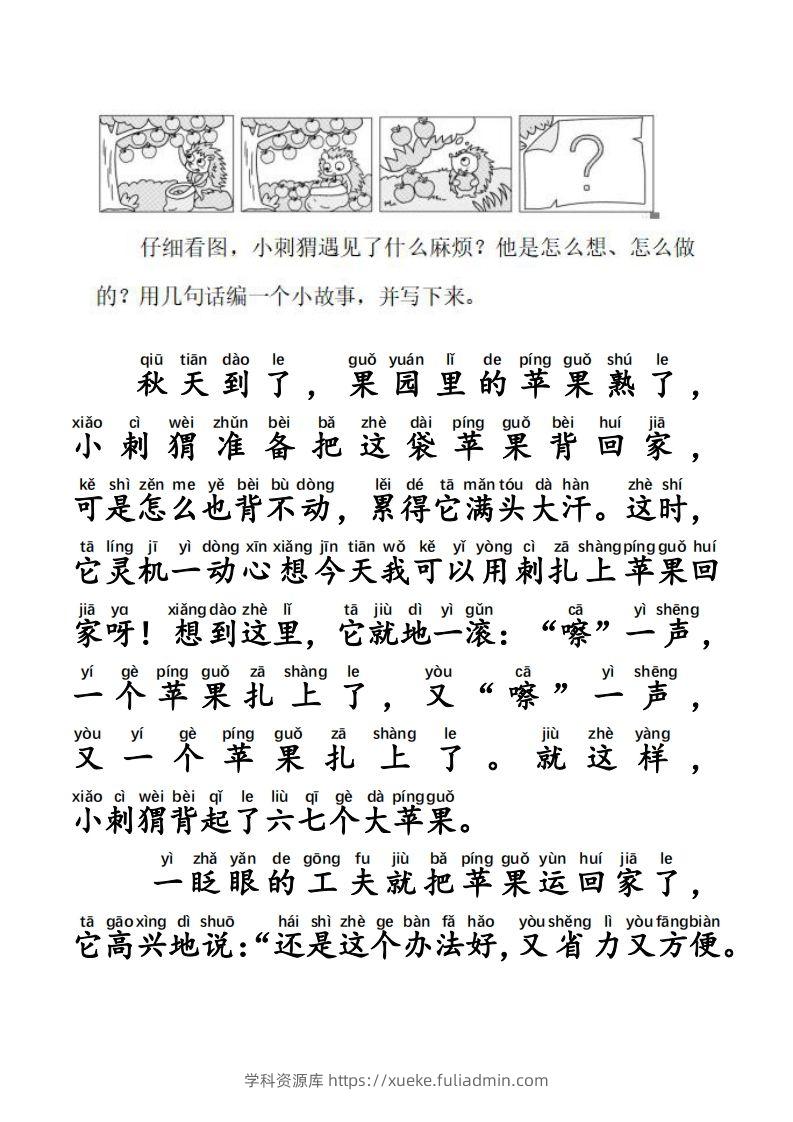 ?
仔细看图，小刺猬遇见了什么麻烦？他是怎么想、怎么做
的？用几句话编一个小故事，并写下来。
qiū tiān dào le guǒ yuán lǐ de píng guǒ shú le
秋天到了，果园里的苹果熟了，
xiǎo cì wèi zhǔn bèi bǎ zhè dài píng guǒ bèi huí jiā
小刺猬准备把这袋苹果背回家，
kě shì zěn me yě bèi bù dòng lěi dé tā mǎn tóu dà hàn zhè shí
可是怎么也背不动，累得它满头大汗。这时，
tā líng jī yì dòng xīn xiǎng jīn tiān wǒ kě yǐ yòng cì zā shàng píng guǒ huí
它灵机一动心想今天我可以用刺扎上苹果回
jiā ya xiǎng dào zhè lǐ tā jiù dì yì gǔn cā yì shēng
家呀！想到这里，它就地一滚：“嚓”一声，
yí gè píng guǒ zā shàng le yòu cā yì shēng
一个苹果扎上了，又“嚓”一声，
yòu yí gè píng guǒ zā shàng le jiù zhè yàng
又一个苹果扎上了。就这样，
xiǎo cì wèi bèi qǐ le liù qī gè dà píng guǒ
小刺猬背起了六七个大苹果。
yì zhǎ yǎn de gōng fu jiù bǎ píng guǒ yùn huí jiā le
一眨眼的工夫就把苹果运回家了，
tā gāo xìng dì shuō hái shì zhè ge bàn fǎ hǎo yòu shěng lì yòu fāng biàn
它高兴地说：“还是这个办法好，又省力又方便。
学科资源库 https://xueke.fuliadmin.com